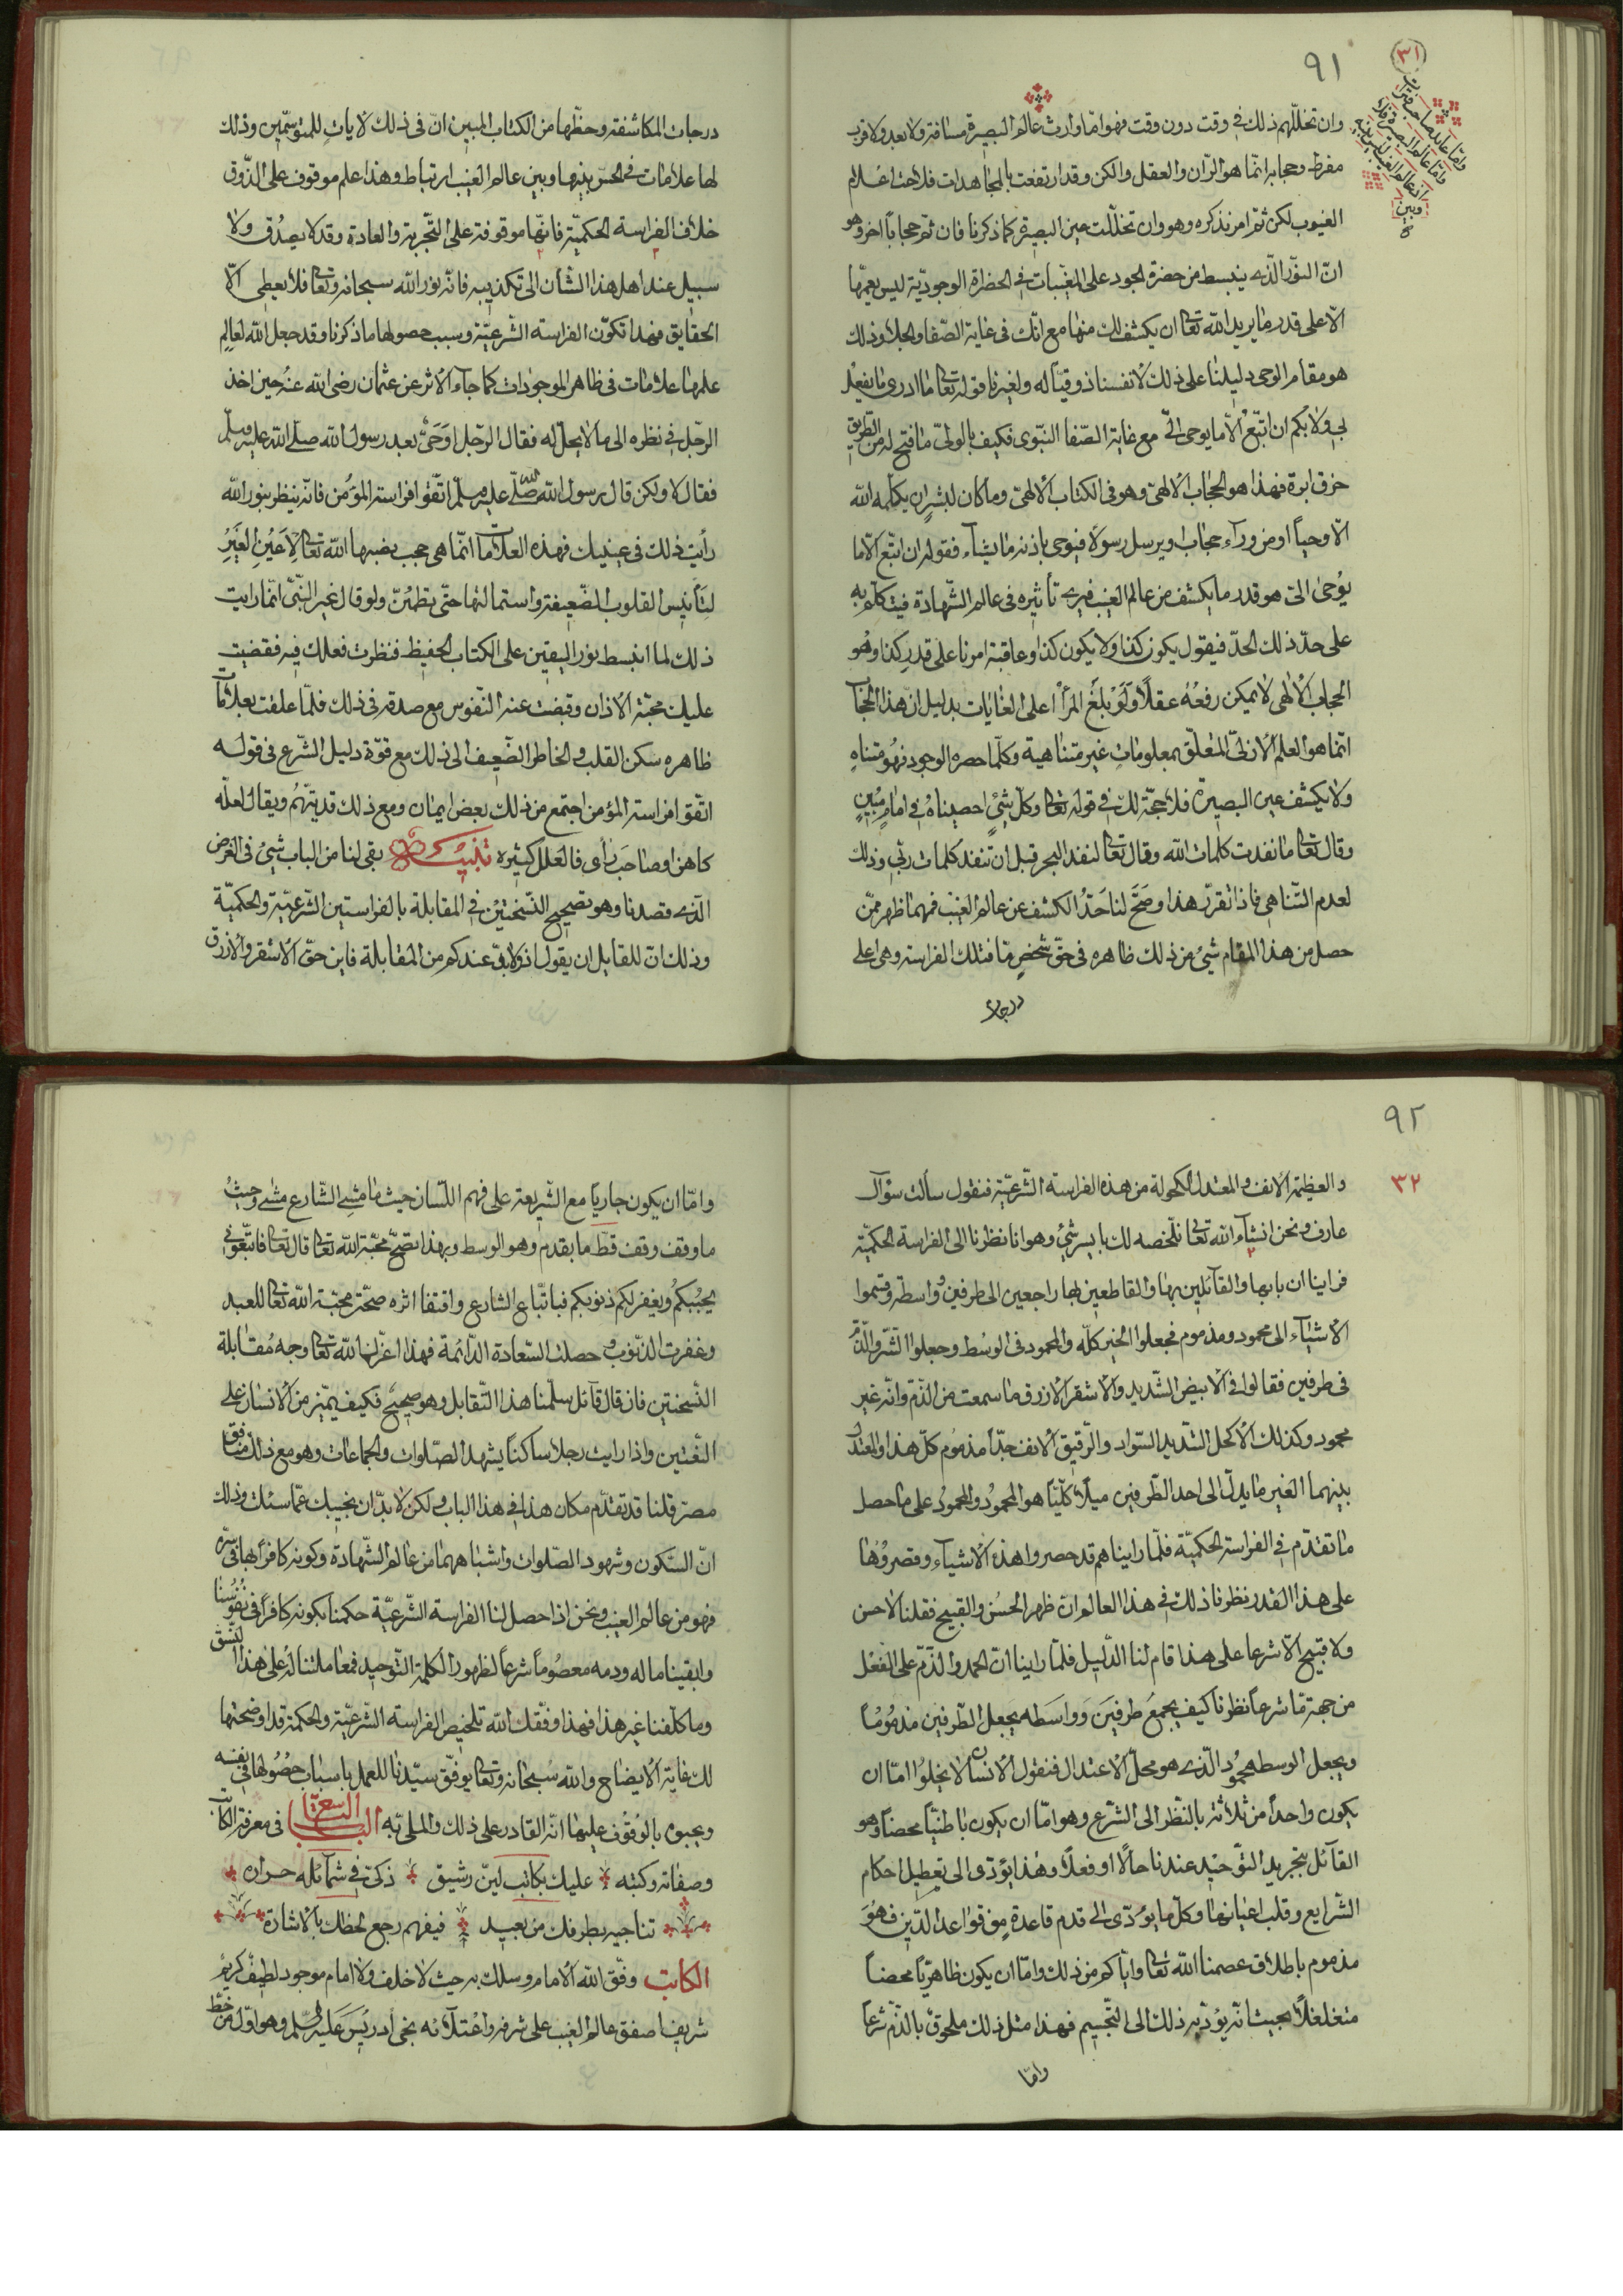 ٩١
٣١
وان تخللهم ذلك في وقت دون وقت فهو امّا وارث عالم البصيرة مسافة ولا بعد ولا قرب
مفرط وحجابه انّما هو الرّان والعقل والكن وقد ارتفعت بالمجاهدات فلاحت اعلام
الغيوب لكن ثمّ امر نذكره وهو وان تخلّلت عين البصيرة كما ذكرنا فان ثمّ حجاباً اخر وهو
انّ النوّر الّذى ينبسط من حضرة الجود على المغيّبات في الحضراة الوجوديّة ليس يعمّها
الّا على قدر ما يريد الله تعالى ان يكشف لك منها مع انّك فى غاية الصّفا والجلا وذلك
هو مقام الوحى دليلنا على ذلك لانفسنا ذوقيّاً له ولغيرنا قوله تعالى ما ادرى ما يفعل
بى ولا بكم ان اتّبع الّا ما يوحى الىّ مع غاية الصّفا النبّوى فكيف بالولىّ ما فتح له من الطّريق
خرق ابرة فهذا هو الحجاب الالهىّ وهو فى الكتاب الالهىّ وما كان لبشر ان يكلّمه الله
الّا وحياً او من ورآء حجاب او يرسل رسولاً فيوحى باذنه ما يشآء فقوله ان اتّبع الّا ما
يُوحى الىّ هو قدر ما يكشف من عالم الغيب فيرى تأثيره فى عالم الشّهادة فيتكلّم به
على حدّ ذلك الحدّ فيقول يكون كذا ولا يكون كذا وعاقبة امرنا على قدر كذا وهُو
الحجاب الالهى لا يمكن رفعُهُ عقلاً وَلَوْ بَلَغَ المرأ اعلى الغايات بدليل ان هذا الحجاب
انّما هو العلم الازلىّ المتعلّق بمعلوماتٍ غير متناهية وكلّما حصره الوجود فهُو متناهٍ
ولا يكشف عين البصيرة فلا حجّة لك فى قوله تعالى وكلّ شىٍء احصيناهُ فى امامٍ مُبينٍ
وقال تعالى ما نفدت كلمات الله وقال تعالى لنفد البحر قبل ان تنفد كلمات ربّى وذلك
لعدم التّناهى فاذا تقرّر هذا وصَحّ لنا حَدّ الكشف عن عالم الغيب فمهما ظهر ممّن
حصل من هذا المقام شىُ من ذلك ظاهره فى حقّ شخصٍ مّا فتلك الفراسة وهى اعلى
درجات
درجات المكاشفة وحظّها من الكتاب المبين انّ فى ذلك لاياتٍ للمتوسّمين وذلك
لها علامات فى الحسّ بينها وبين عالم الغيب ارتباط وهذا علم موقوف على الذّوق
خلاف الفراسة الحكميّة فانّها موقوفة على التّجربة والعادة وقد لا يصدُق ولا
سبيل عند اهل هذا الشّان الى تكذيبه فانّه نور الله سبحانه وتعالى فلا يعطى الّا
الحقايق فهذا تكوّن الفراسة الشّرعيّة وسبب حصولها ما ذكرنا وقد جعل الله لعالِم
علمها علامات فى ظاهر الموجودات كما جآء الاثر عن عثمان رضى الله عنهُ حين اخذ
الرّجل فى نظره الى ما لا يحلّ له فقال الرّجل اوَحَىٌ بعد رسول الله صلّى الله عليه وسلّم
فقال لا ولكن قال رسول الله صلّى الله عليه وسلّم اتّقوا فراسة المؤمن فانّه ينظر بنور الله
رأيت ذلك فى عينيك فهذه العلامات انّما هى حجب نصبها الله تعالى لِاَعيُنِ الغَيرِ
لتَأنيس القلوب الضّعيفة واستمالتها حتّى تطمئنّ ولو قال غير النّبىّ انّما رايت
ذلك لما انبسط نور اليقين على الكتاب الحفيظ فنظرت فعلك فيه فقضيت
عليك مجّته الاذان وقبضت عنه النّفوس مع صدقه فى ذلك فلمّا علقت بعلامات
ظاهره سكن القلب والخاطر الضّعيف الى ذلك مع قوّة دليل الشّرع فى قوله
اتّقوا فراسة المؤمن اجتمع من ذلك بعض ايمان ومع ذلك قد يتهّم ويقال لعلّه
كاهن او صاحَب رأى فالعلل كثيره تنبيه بقى لنا من الباب شىُ فى الغرض
الّذى قصدنا وهو تصحيح النّسختيْن فى المقابلة بالفراستين الشّرعيّة والحكميّة
وذلك انّ للقايل ان يقول اذ ولا بقى عندكم من المقابلة فاين حقّ الاشقر والازرق
٩٢
٣٢
والعظيمة الانف والمعتدل الكحولة من هذه الفراسة الشّرعيّة فنقول سألت سؤال
عارف ونحن انشآء الله تعالى نلخصه لك بايسر شىٍ وهو انا نظرنا الى الفراسة الحكميّة
فراينا اربابها والقآئلين بها والقاطعين لها راجعين الى طرفين وواسطة وقسّموا
الاشيآء الى محمود ومذموم فجعلوا الخير كلّه والمحمود فى الوسُط وجعلوا الشّر والذّمّ
فى طرفين فقالوا فى الابيض الشّديد والاشقر الازرق ما سمعت من الذّم وانّه غير
محمود وكذلك الاكحل الشّديد السّواد والرّقيق الانف جدّاً مذمُوم كلّ هذا والمعتدل
بينهما الغير مايل الى احد الطّرفين ميلاً كلّيّاً هو المحمُودُ والمحمودُ على ما حصل
ما تقدّم فى الفراسة الحكميّة فلمّا رايناهم قد حصروا هذه الاشيآء وقصروُها
على هذا القدر نظرنا ذلك فى هذا العالم ان ظهر الحُسن والقبيح فقلنا لا حسن
ولا قبيح الّا شرعا على هذا قام لنا الدّليل فلمّا راينا انّ الحمد والذّمّ على الفعْل
من جهة مّا شرعاً نظرنا كيف يجمعُ طرفيَن وَواسَطه يجعل الطّرفين مذمُومًا
ويجعل الوسط محمُود الّذى هو محلّ الاعتدال فنقول الانسان لا يخلوُا امّا ان
يكون واحداً من ثلاثة بالنّظر الى الشّرع وهو امّا ان يكون باطنيّاً محضاً وهو
القآئل بتجريد التّوحيد عندنا حالاً او فعلاً وهذا يؤدى الى تعطيل احكام
الشّرايع وقلب اعيانها وكلّ ما يؤدّى الى قدم قاعدةٍ مِن قواعد الدّين فهُوَ
مذموم باطلاق عصمنا الله تعالى وايّاكم من ذلك وامّا ان يكون ظاهريّاً محضاً
متغلغلاً بحيث انّه يؤدّيه ذلك الى التّجسيم فهذا مثل ذلك ملحوق بالذّم شرعاً
وامّا
وامّا ان يكون جارياً مع الشّريعة على فهم اللّسان حيث ما مشى الشّارع مشى وحيثُ
ما وقف وقف قطّ ما بقدم وهو الوسط وبهذا تصحّ محبّة الله تعالى قال تعالى فاتّبعونى
يحببكُم ويغفر لكم ذنوبكم فباتّباع الشارع واقتفا اثره صحّت محبّة الله تعالى للعبد
وغفرت الذنّوب وحصلت السّعادة الدّائمة فهذا اعزّك الله تعالى وجه مُقابلة
النّسختين فان قال قآئل سلّمنا هذا التّقابل وهو صحيح فكيف يميّز من الانسان على
النّعتين واذا رايت رجلاً ساكناً يشهد الصّلوات والجماعات وهو مع ذلك منافق
مصرّ قلنا قد تقدّم مكان هذا فى هذا الباب ولكن لا بدّ ان نجيبك عمّا سئلت وذلك
انّ السّكون وشهود الصّلوات واشباههما من عالم الشّهادة وكونه كافراً بها فى سرّه
فهو من عالم الغيب ونحن اذا حصل لنا الفراسة الشّرعيّة حكمنا بكونه كافراً فى نفوُسُنا
وابقينا ماله ودمه معصُوماً شرعاً لظهور الكلمة التّوحيد فمعاملتنا لهُ على هذا
وما كلّفنا غير هذا فهذا وفّقك الله تلخيص الفراسة الشّرعيّة والحكمة قد اوضحتها
لك غاية الايضاح والله سُبحانه وتعالى يوفّق سيّدنا للعمل باسباب حصُولها فى نفسه
بالوُقُوف عليها انّه القادر على ذلك والملى به الباب التاسع فى معرفة الكاتب
وصفاته وكتبه عليك بكاتب ليّن رشيق ذكىّ فى شمآئله حراره
تناجيه بطرفك من بعيد فيفهم رجع لحظك بالاشارة
الكاتب وفّق الله الامام وسلك به حيث لا خلف ولا امام موجود لطيف كريم
شريف اصفق عالم الغيب على شرفه واعتلآئه بخى ادريسَ عَليه السّلم وهو اوّل من خطّ